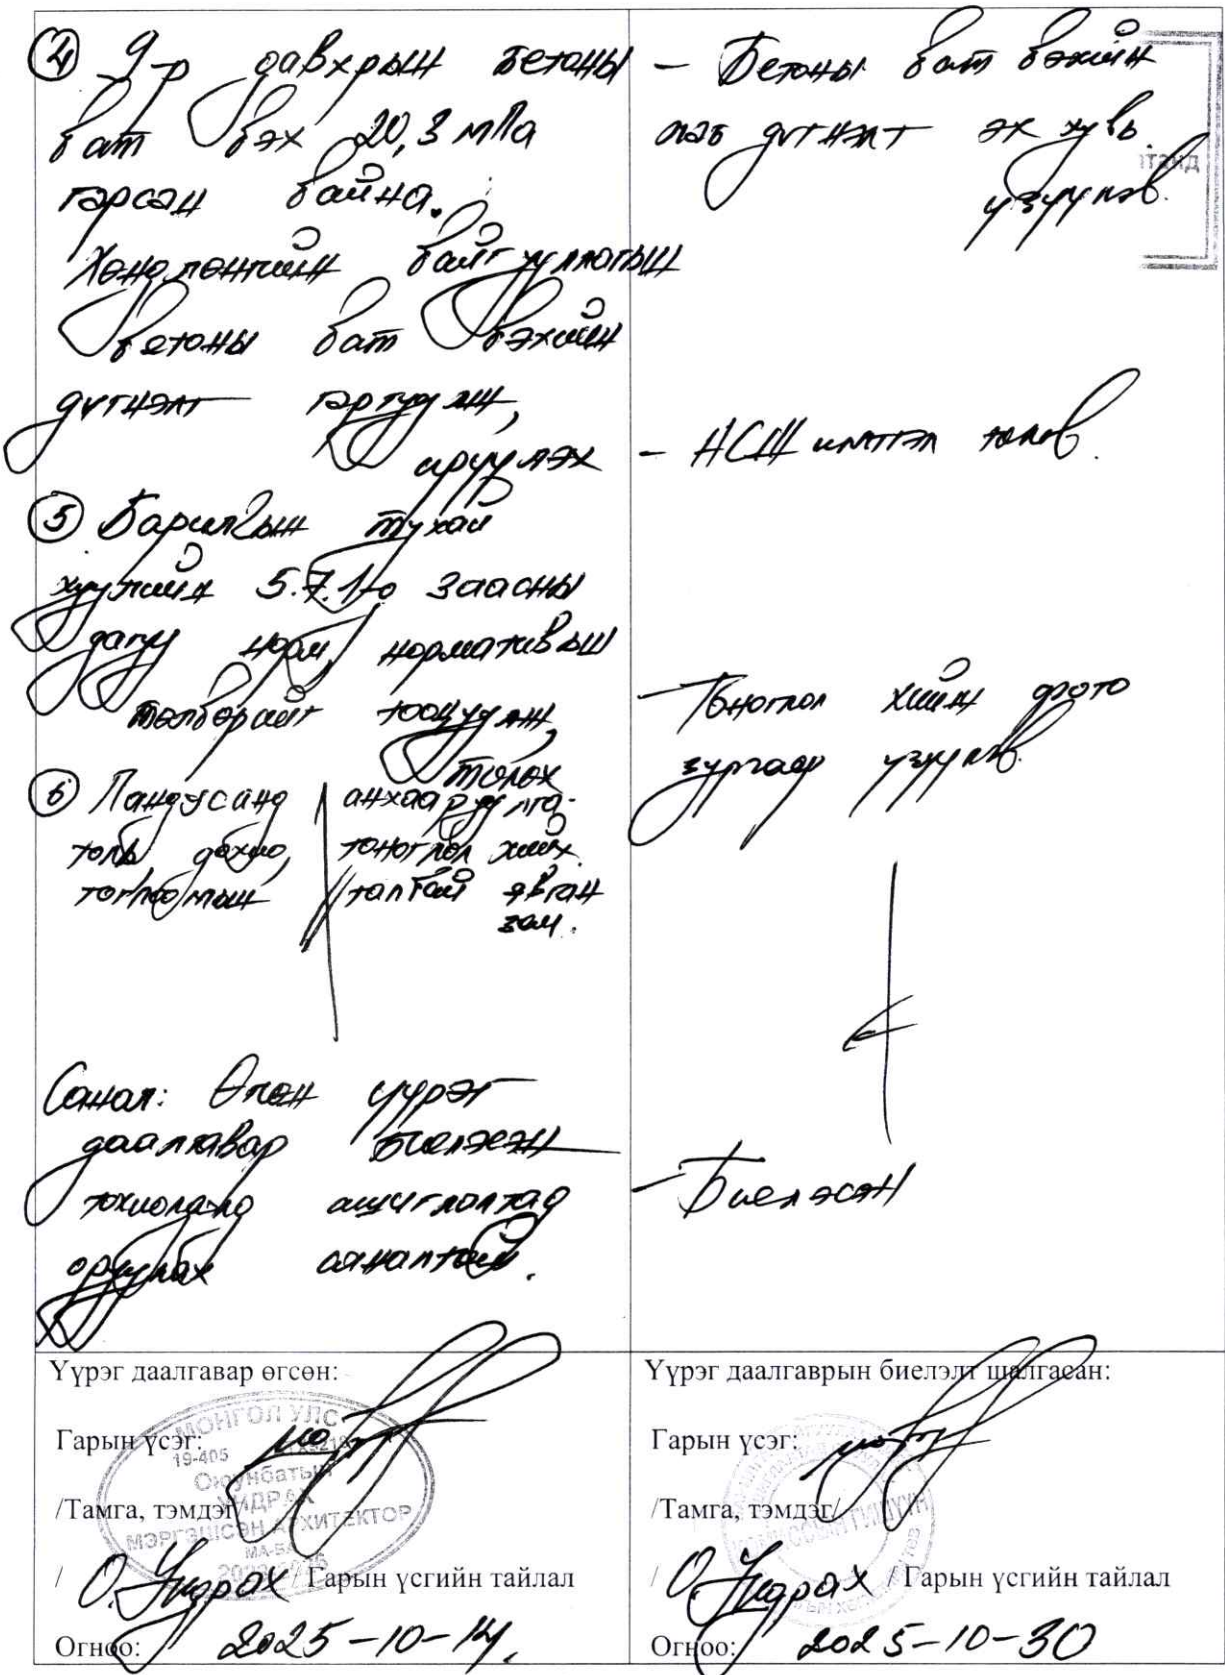 ④ 9-р давхрын бетоны
бат бэх 20,3 мПа
гарсан байна.
Хөндлөнгийн байгууллагын
бетоны бат бэхийн
дүгнэлт гаргуулж,
ирүүлэх
⑤ Барилгын тухай
хуулийн 5.7.1-д заасны
дагуу норм, нормативын
төлбөрийг тооцуулж,
төлөх
⑥ Пандусанд анхааруулга
толь дохио, тоноглол хийх.
тоглоомын талбай явган
зам.
Санал: Өгсөн үүрэг
даалгавар биелсэн
тохиолдолд ашиглолтад
оруулах саналтай.
- Бетоны бат бэхийн
лаб дүгнэлт эх хувь
үзүүлэв.
- НСН имтгэл төлөв.
- Тоноглол хийж фото
зургаар үзүүлэв.
- Биелэсэн
Үүрэг даалгавар өгсөн:
Гарын үсэг:
/Тамга, тэмдэг/
/ О. Ундрах / Гарын үсгийн тайлал
Огноо: 2025-10-14.
МОНГОЛ УЛС
19-405
Оюунбатын
УНДРАХ
МЭРГЭШСЭН АРХИТЕКТОР
Үүрэг даалгаврын биелэлт шалгасан:
Гарын үсэг:
/Тамга, тэмдэг/
/ О. Ундрах / Гарын үсгийн тайлал
Огноо: 2025-10-30